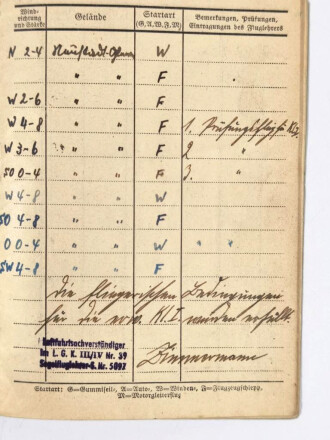 Windrichtung und Stärke Gelände Startart (G. A. W. F. M) Bemerkungen, Prüfungen, Eintragungen des Fluglehrers
N 2-4 Neustadt- W
" " F
W 2-6 " " F
W 4-8 " " F 1. Prüfungsflug
W 3-6 " " F 2 "
SO 0-4 " " F 3. "
W 4-8 " " W
SO 4-8 " " F
O 0-4 " " W " "
SW 4-8 " " F
Die fliegerischen Bedingungen
für die erw. Kl. I wurden erfüllt.
Luftfahrtsachverständiger
im L. G. K. III/IV Nr. 39
Segelfluglehrer-S. Nr. 5097
Zimmermann
Startart: G=Gummiseil-, A=Auto-, W=Winden-, F=Flugzeugschlepp.
M=Motorgleiterflug